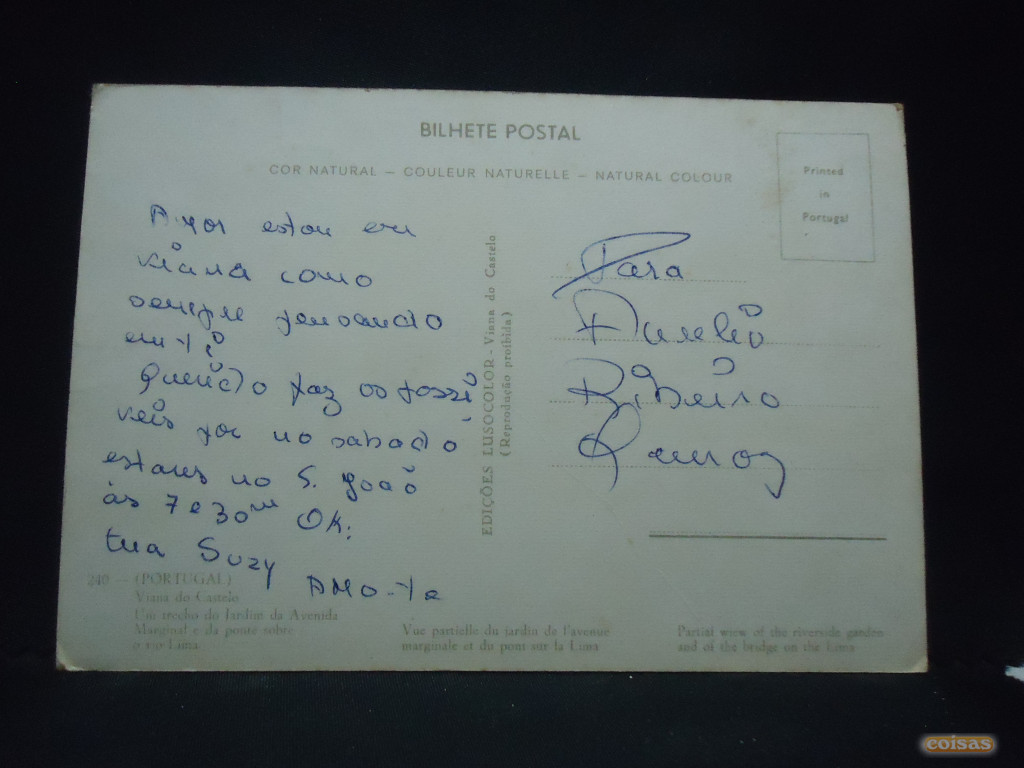 BILHETE POSTAL
COR NATURAL — COULEUR NATURELLE — NATURAL COLOUR
Printed
in
Portugal
Amor estou em
viana como
sempre pensando
em ti
Querido faz os possi
veis por no sabado
estares no S. João
às 7 e 30m OK!
tua Suzy AMO-Te
EDIÇÕES LUSOCOLOR - Viana do Castelo
(Reprodução proibida)
Para
Aurelio
Ribeiro
Ramos
240 — (PORTUGAL)
Viana do Castelo
Um trecho do Jardim da Avenida
Marginal e da ponte sobre
o rio Lima
Vue partielle du jardin de l'avenue
marginale et du pont sur la Lima
Partial wiew of the riverside garden
and of the bridge on the Lima
coisas